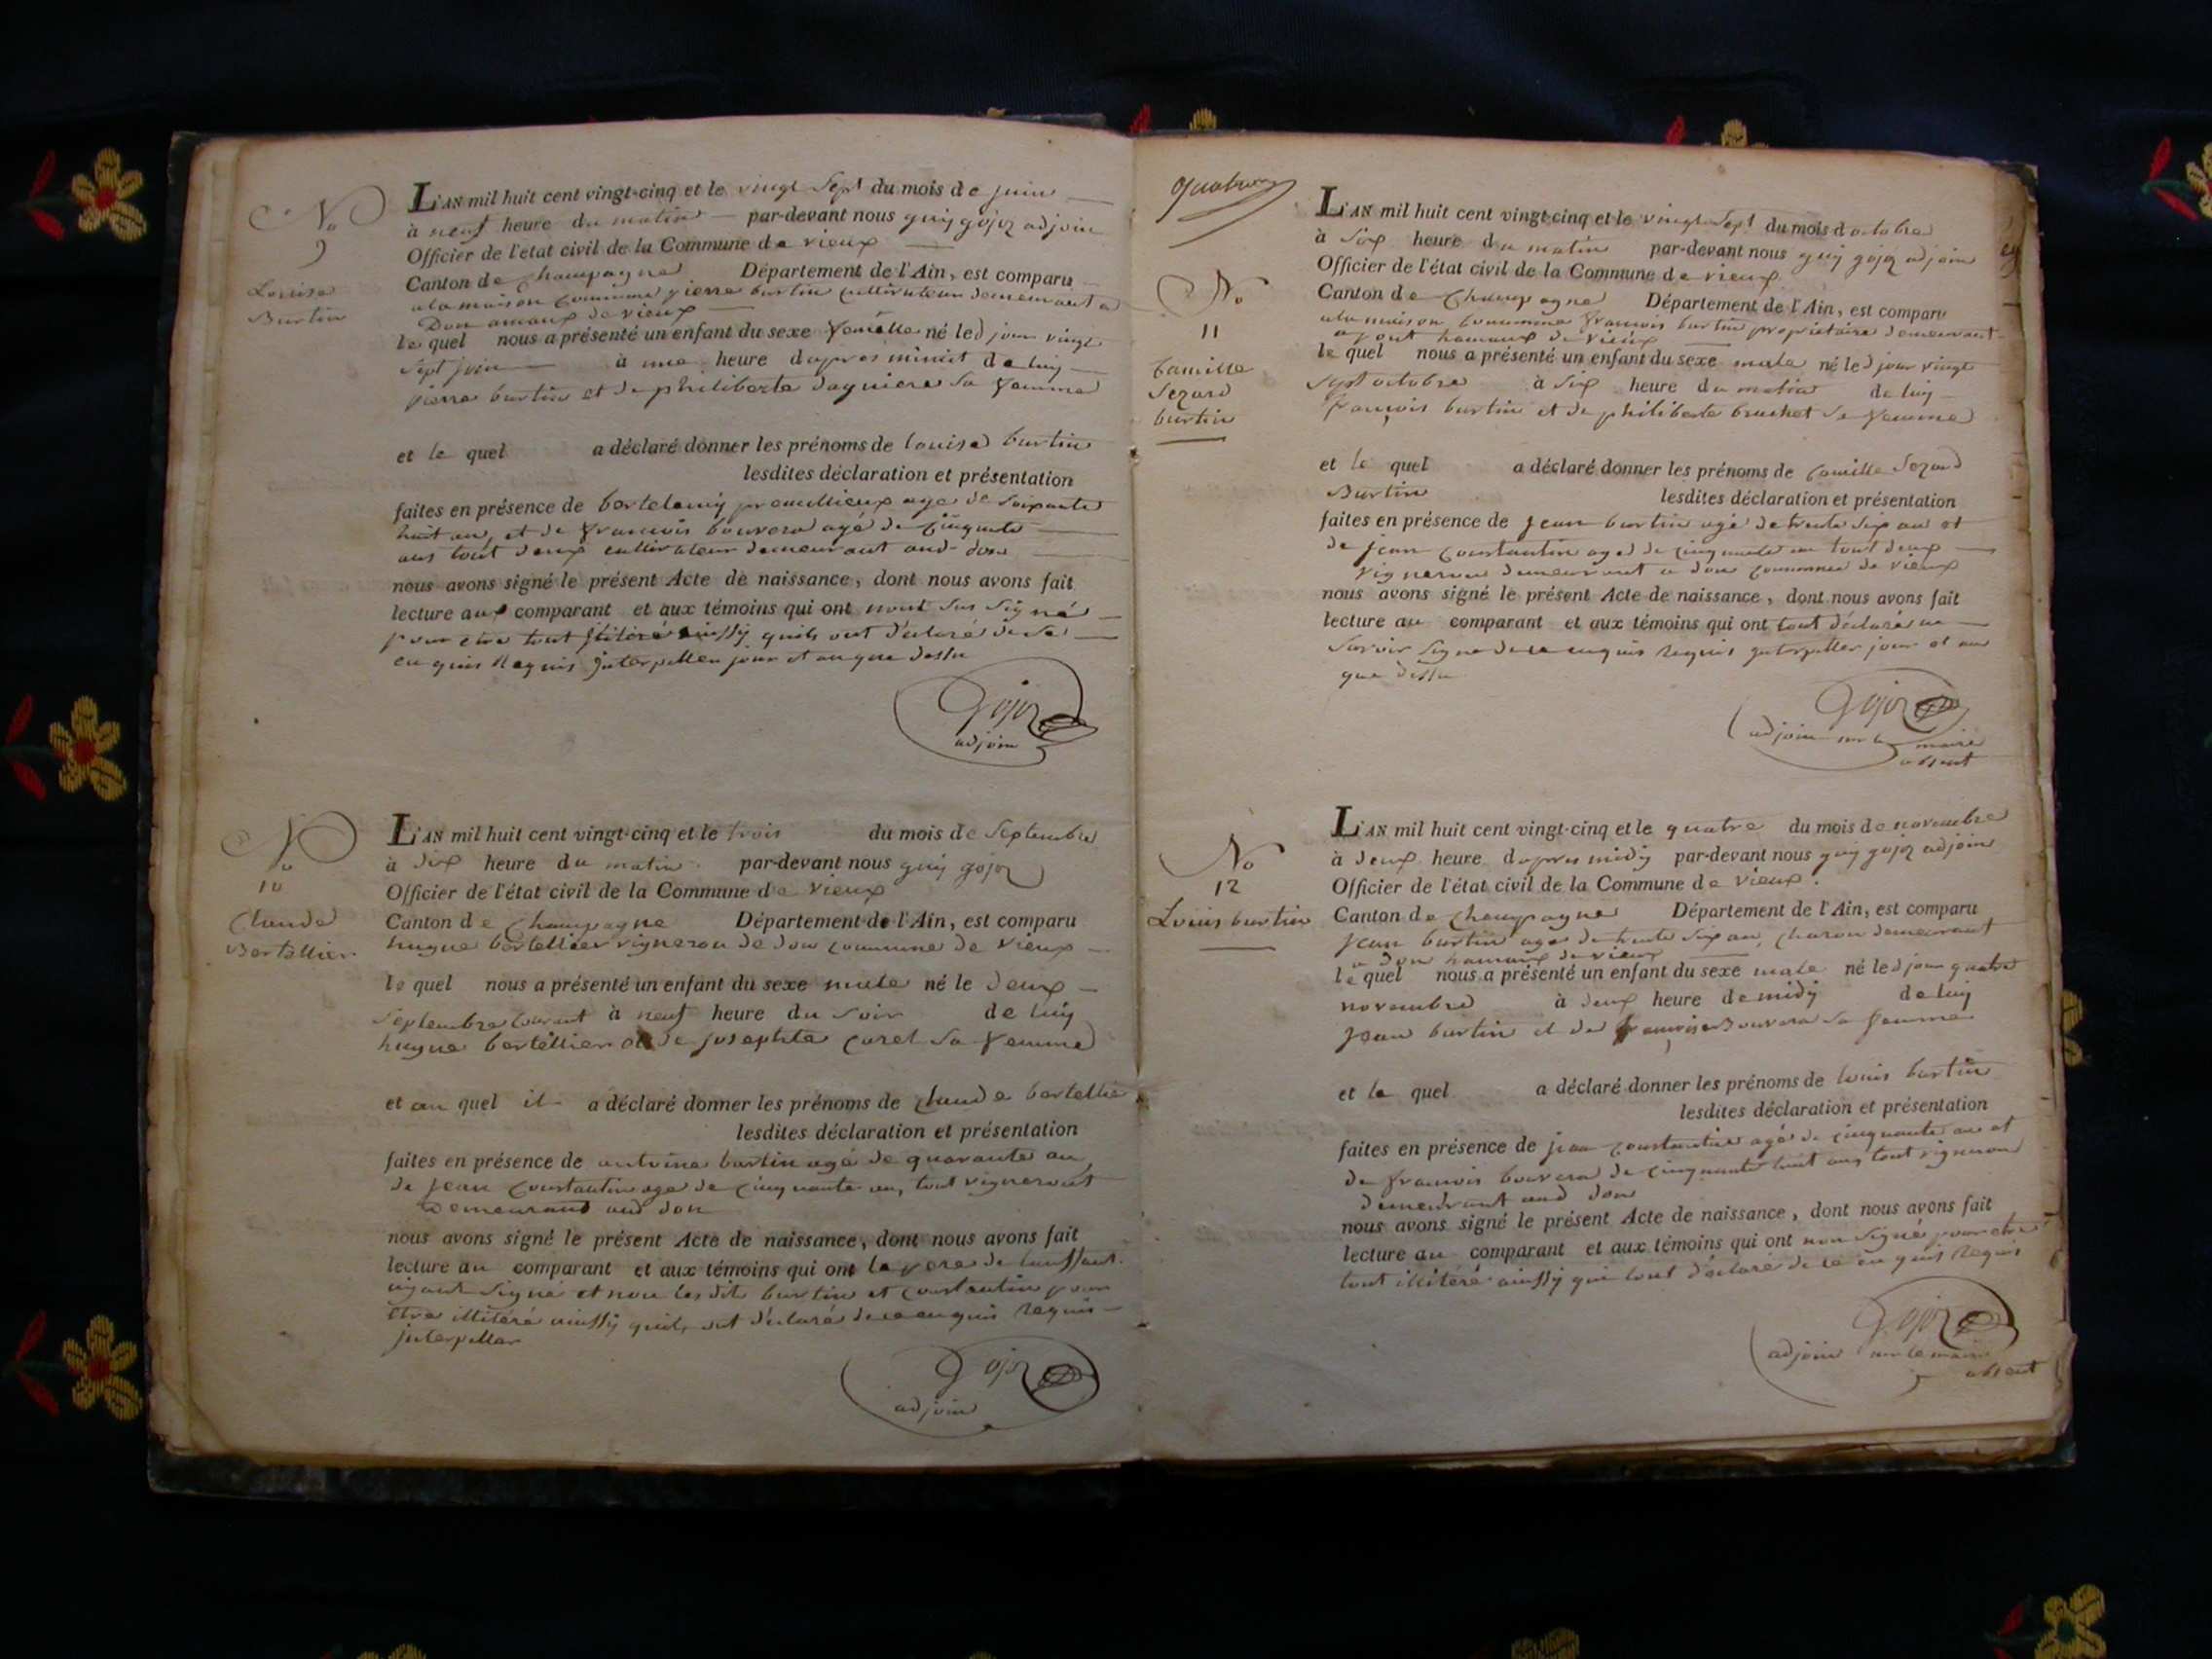 No
9
Louise
Burtin
L'AN mil huit cent vingt-cinq et le vingt Sept du mois de juin
à neuf heure du matin par-devant nous guij gojoz adjoin
Officier de l'état civil de la Commune de vieux
Canton de Champagne Département de l'Ain, est comparu
a la maison commune pierre burtin cultivateur demeurant a
Don amaux de vieux
le quel nous a présenté un enfant du sexe femelle né led jour vingt
sept juin à une heure dapres minuit de luy
pierre burtin et de philiberte daguiere sa femme
et le quel a déclaré donner les prénoms de louise burtin
lesdites déclaration et présentation
faites en présence de bartelemij age de soixante
huit an, et de francois bouvera agé de cinquante
ans tout deux cultivateur demeurant aud don
nous avons signé le présent Acte de naissance, dont nous avons fait
lecture aux comparant et aux témoins qui ont nont sus signé
pour etre tout ainssy quils ont déclaré de ce
enquis Requis interpeller jour et an que dessu
Gojoz
adjoin
No
10
Claude
Bertellier
L'AN mil huit cent vingt-cinq et le trois du mois de Septembre
à six heure du matin par-devant nous guij gojoz
Officier de l'état civil de la Commune de vieux
Canton de Champagne Département de l'Ain, est comparu
hugue bertellier vigneron de don commune de vieux
le quel nous a présenté un enfant du sexe male né le deux
septembre courant à neuf heure du soir de luij
hugue bertellier et de josephte caret sa femme
et au quel il a déclaré donner les prénoms de claude bertellie
lesdites déclaration et présentation
faites en présence de antoine burtin agé de quarante an
de jean constantin age de cinquante an, tout vigneront
demeurand aud don
nous avons signé le présent Acte de naissance, dont nous avons fait
lecture au comparant et aux témoins qui ont le pere de lenffant
aijant signé et non les dit burtin et constantin pour
etre illitéré ainssij quils ont déclaré de ce enquis requis
jnterpeller
Gojoz
adjoin
quatre
No
11
Camille
Sezard
burtin
L'AN mil huit cent vingt-cinq et le vingt Sept du mois doctobre
à six heure du matin par-devant nous guij gojoz adjoin
Officier de l'état civil de la Commune de vieux
Canton de Champagne Département de l'Ain, est comparu
a la maison commune francois burtin propriétaire demeurant
hamaux de vieux
le quel nous a présenté un enfant du sexe male né led jour vingt
sept octobre à six heure du matin de luij
françois burtin et de philiberte bruchet sa femme
et le quel a déclaré donner les prénoms de Camille Sezard
Burtin lesdites déclaration et présentation
faites en présence de jean burtin agé de trente six an et
de jean constantin aged de cinquante an tout deux
vigneron demeurant a don commune de vieux
nous avons signé le présent Acte de naissance, dont nous avons fait
lecture au comparant et aux témoins qui ont tout déclaré ne
savoir signe de ce enquis requis jnterpeller jour et an
que dessu
Gojoz
adjoin le maire
absent
No
12
Louis burtin
L'AN mil huit cent vingt-cinq et le quatre du mois de novembre
à deux heure dapres midij par-devant nous guij gojoz adjoin
Officier de l'état civil de la Commune de vieux
Canton de Champagne Département de l'Ain, est comparu
jean burtin age de trente six an, charon demeurant
a don hamaux de vieux
le quel nous a présenté un enfant du sexe male né led jour quatre
novembre à deux heure de midij de luij
jean burtin et de françoise Bouvera sa femme
et le quel a déclaré donner les prénoms de louis burtin
lesdites déclaration et présentation
faites en présence de jean constantin agé de cinquante an et
de francois bouvera de cinquante huit ans tout vigneron
demeurant aud don
nous avons signé le présent Acte de naissance, dont nous avons fait
lecture au comparant et aux témoins qui ont non signé pour etre
tout illitéré ainssij qui lont déclaré de ce enquis Requis
Gojoz
adjoin le maire
absent